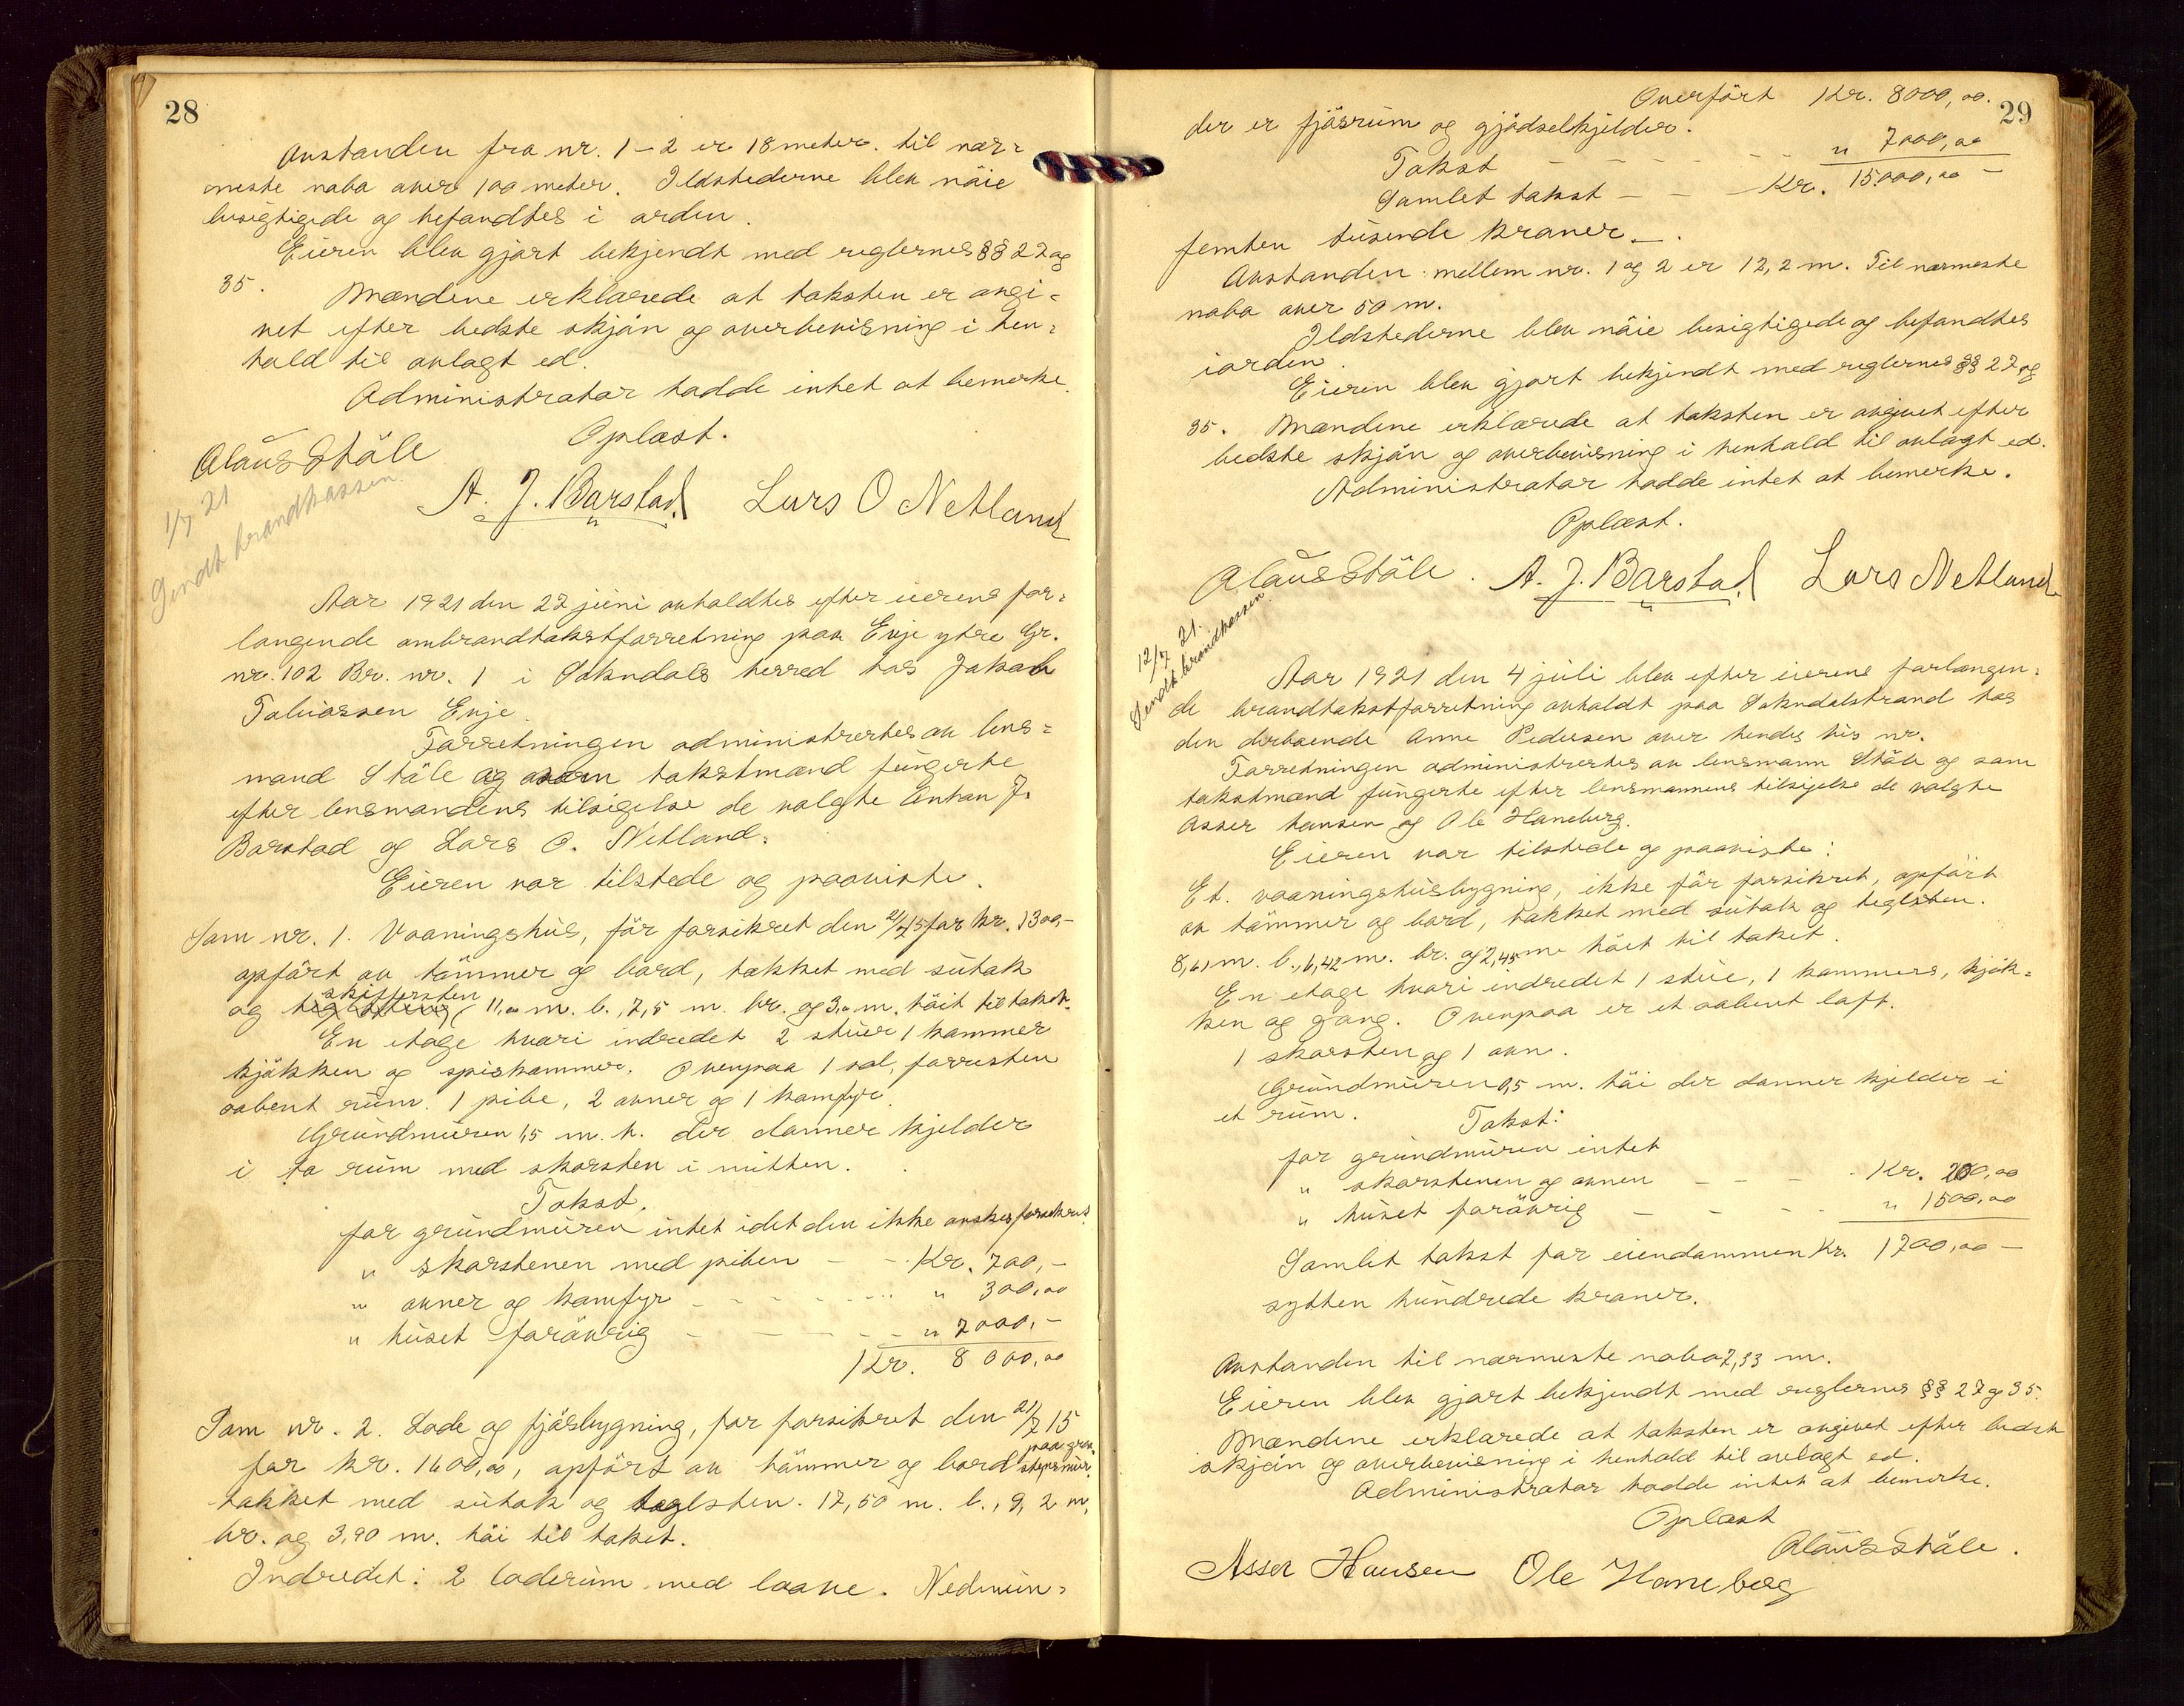 28
Avstanden fra nr. 1-2 er 18 meter. til nær=
meste nabo over 100 meter. Ildstederne blev nöie
besigtigede og befandtes i orden.
Eieren blev gjort bekjendt med reglernes §§ 27 og
35. Mændene erklærede at taksten er avgi=
vet efter bedste skjön og overbevisning i hen=
hold til avlagt ed.
Administrator hadde intet at bemerke.
Oplæst.
Olaus Ståle
A. J. Barstad Lars O Netland
1/7 21
Sendt brandkassen.
Aar 1921 den 27 juni avholdtes efter eierens for=
langende ombrandtakstforretning paa Evje ytre Gr.
nr. 102 Br. nr. 1 i Sokndals herred hos Jakob
Tobiassen Evje.
Forretningen administrertes av lens=
mand Ståle og som takstmænd fungerte
efter lensmandens tilsigelse de valgte Anton J.
Barstad og Lars O. Netland.
Eieren var tilstede og paaviste.
Som nr. 1. Vaaningshus, för forsikret den 21/7 15 for kr. 1300,-
opfört av tömmer og bord, tækket med sutak
og skiffersten 11,00 m. l., 7,5 m. br. og 3,0 m. höit til taket.
En etage hvori indredet 2 stuer 1 kammer
kjökken og spiskammer. Ovenpaa 1 sal, forresten
aabent rum. 1 pibe, 2 ovner og 1 komfyr.
Grundmuren 1,5 m. h. der danner kjelder
i to rum med skorsten i mitten.
Takst.
for grundmuren intet idet den ikke önskes forsikret.
" skorstenen med piben - - Kr. 700,-
" ovner og komfyr - - - - " 300,00
" huset forövrig - - - - " 7000,-
Kr. 8000,00
Som nr. 2. Lade og fjösbygning, för forsikret den 21/7 15
for kr. 1600,00, opfört av tömmer og bord paa graa-
stensmur.
tækket med sutak og teglsten. 17,50 m. l., 9,2 m.
br. og 3,90 m. höi til taket.
Indredet: 2 laderum med laave. Nedmun=
29
Overfört Kr. 8000,00.
der er fjösrum og gjödselkjelder.
Takst - - - - " 7000,00
Samlet takst - - Kr. 15.000,00 -
femten tusende kroner -.
Avstanden mellem nr. 1 og 2 er 12,2 m. Til nærmeste
nabo over 50 m.
Ildstederne blev nöie besigtigede og befandtes
i orden.
Eieren blev gjort bekjendt med reglernes §§ 27 og
35. Mændene erklærede at taksten er avgivet efter
bedste skjön og overbevisning i henhold til avlagt ed.
Administrator hadde intet at bemerke.
Oplæst.
Olaus Ståle. A. J. Barstad Lars Netland
12/7 21.
Sendt brandkassen.
Aar 1921 den 4 juli blev efter eierens forlangen=
de brandtakstforretning avholdt paa Sokndalstrand hos
den derboende Anne Pedersen over hendes hus nr.
Forretningen administrertes av lensmann Ståle og som
takstmænd fungerte efter lensmannens tilsigelse de valgte
Asser Hansen og Ole Haneberg.
Eieren var tilstede og paaviste:
Et. vaaningshusbygning, ikke för forsikret, opfört
av tömmer og bord, tækket med sutak og teglsten.
8,61 m. l., 6,42 m. br. og 2,45 m höit til taket.
En etage hvori indredet 1 stue, 1 kammers, kjök=
ken og gang. Ovenpaa er et aabent loft.
1 skorsten og 1 ovn.
Grundmuren 0,5 m. höi der danner kjelder i
et rum.
Takst:
for grundmuren intet
" skorstenen og ovnen - - - Kr. 200,00
" huset forövrig - - - " 1500,00
Samlet takst for eiendommen Kr. 1700,00 -
sytten hundrede kroner.
Avstanden til nærmeste nabo 7,33 m.
Eieren blev gjort bekjendt med reglernes §§ 27 og 35.
Mændene erklærede at taksten er avgivet efter bedste
skjön og overbevisning i henhold til avlagt ed.
Administrator hadde intet at bemerke.
Oplæst
Olaus Ståle.
Asser Hansen Ole Haneberg